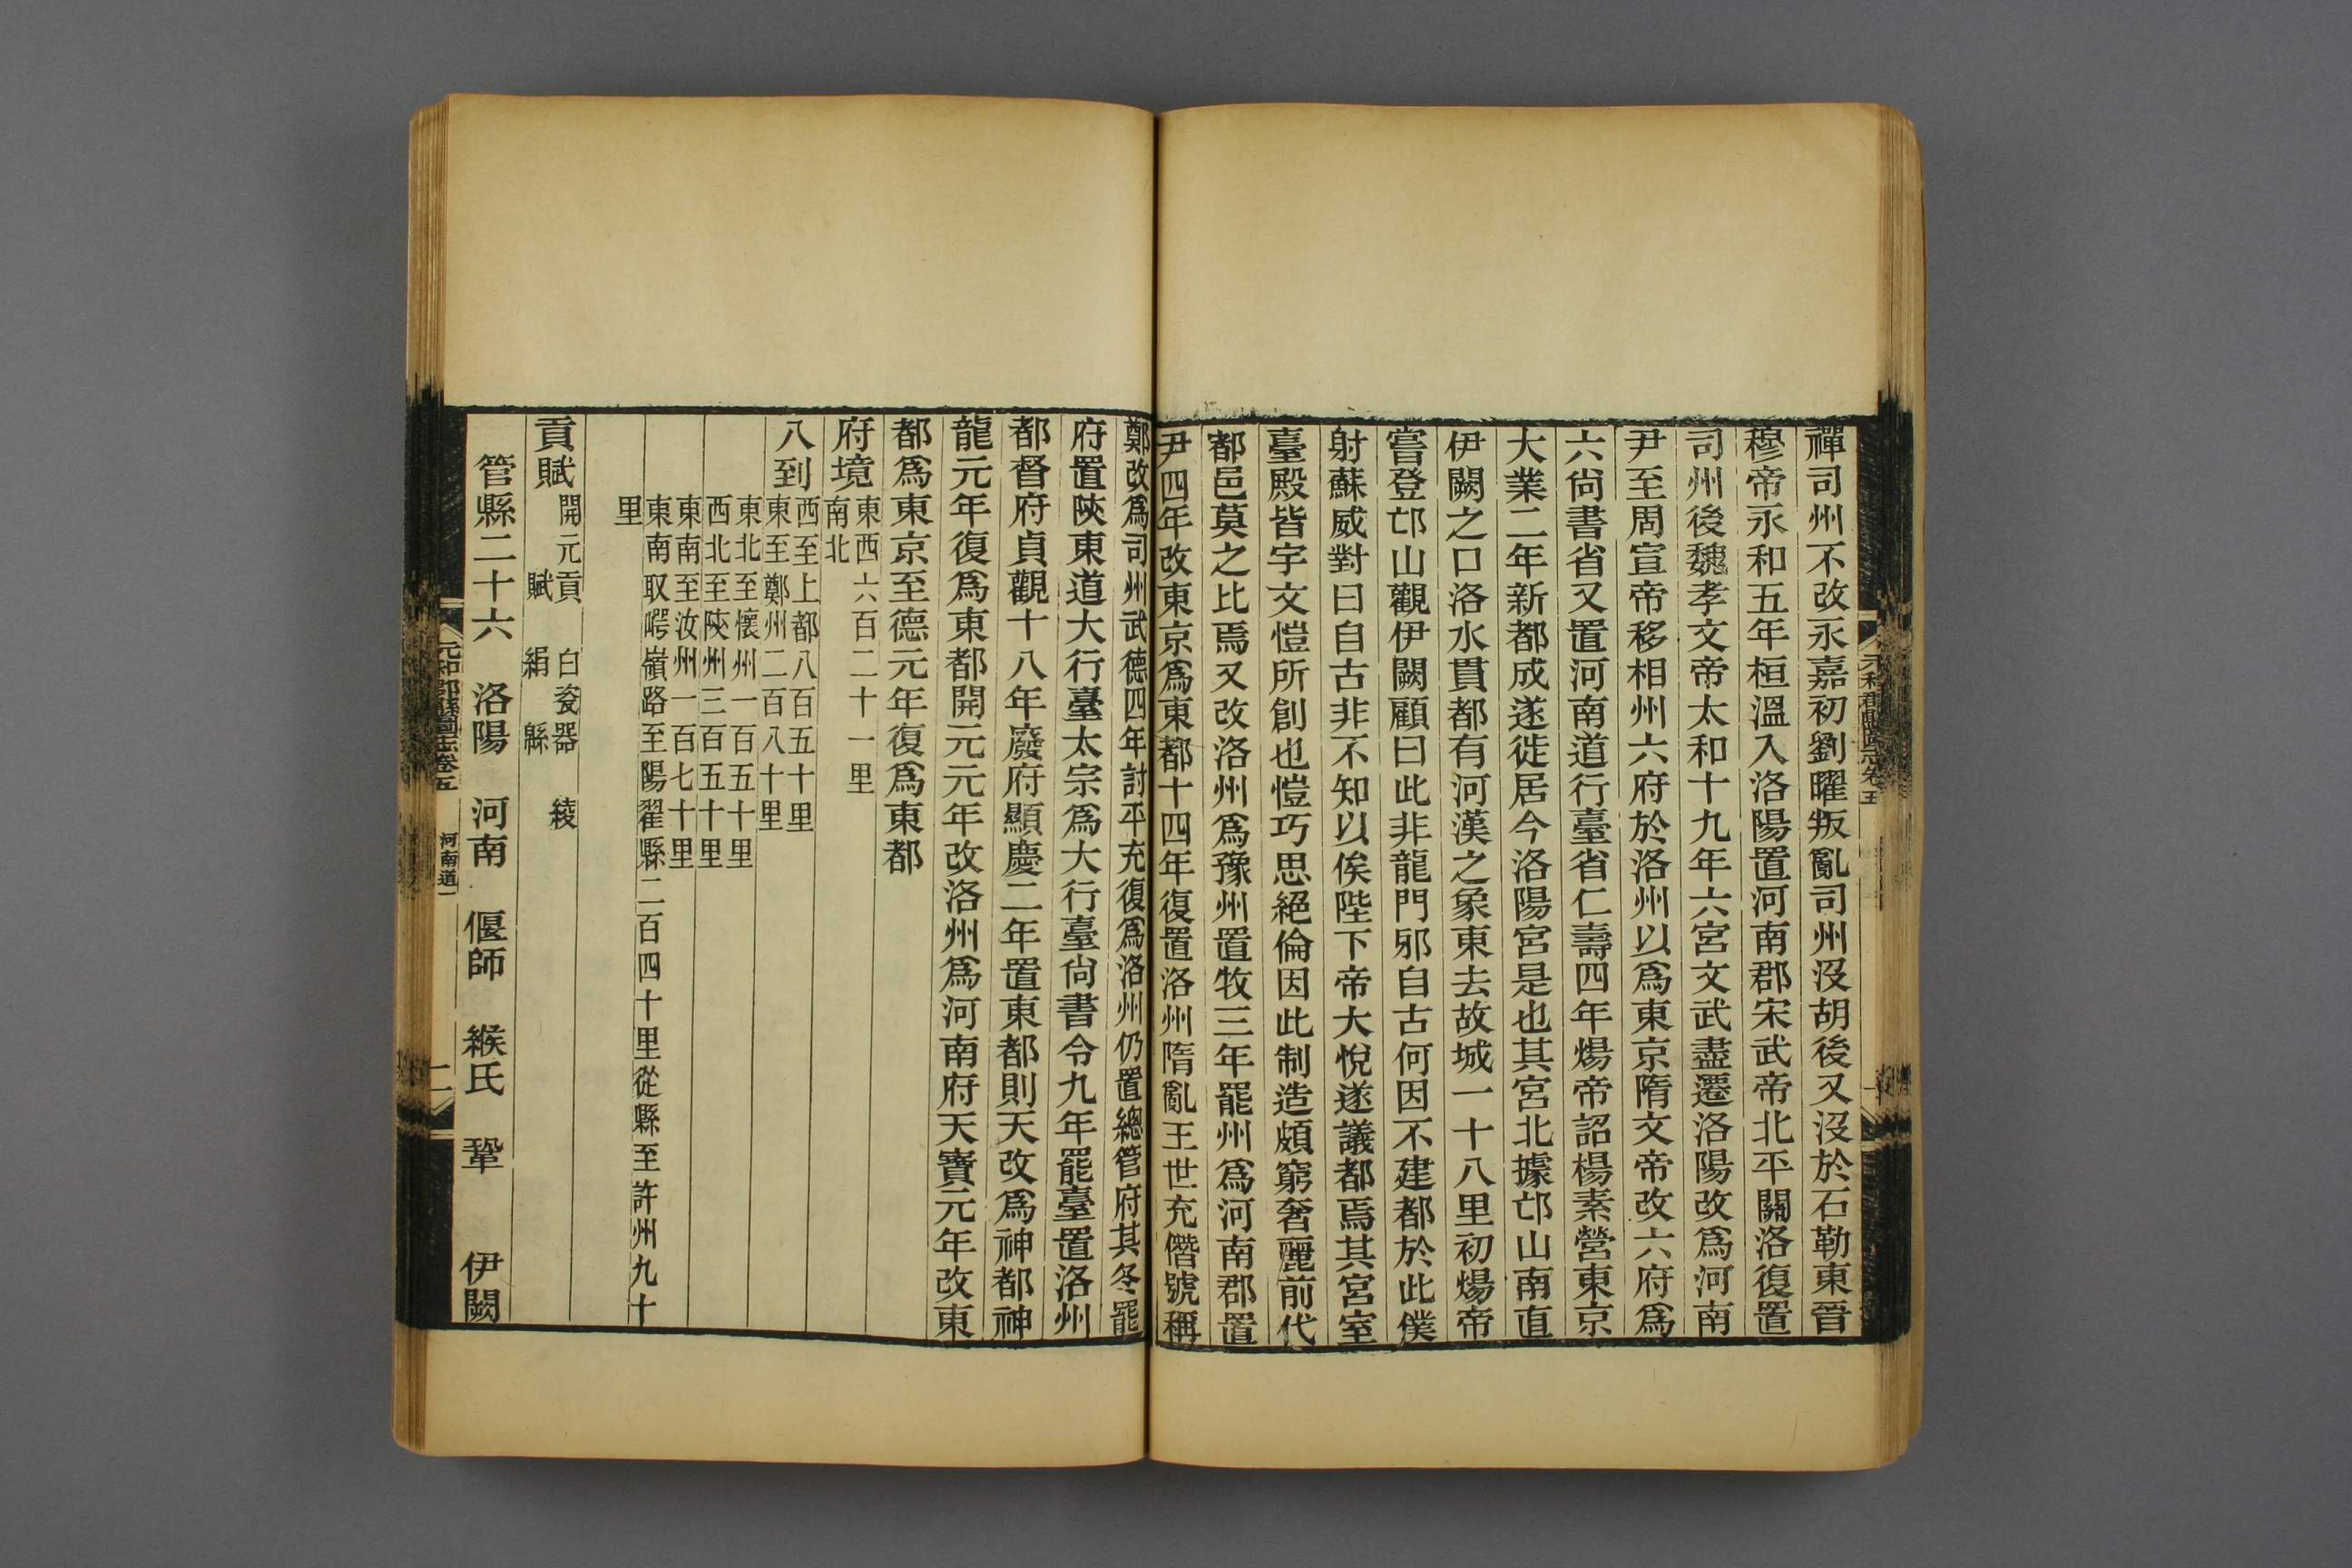 禪司州不改永嘉初劉曜叛亂司州沒胡後又沒於石勒東晉
穆帝永和五年桓溫入洛陽置河南郡宋武帝北平關洛復置
司州後魏孝文帝太和十九年六宮文武盡遷洛陽改爲河南
尹至周宣帝移相州六府於洛州以爲東京隋文帝改六府爲
六尙書省又置河南道行臺省仁壽四年煬帝詔楊素營東京
大業二年新都成遂徙居今洛陽宮是也其宮北據邙山南直
伊闕之口洛水貫都有河漢之象東去故城一十八里初煬帝
嘗登邙山觀伊闕顧曰此非龍門邪自古何因不建都於此僕
射蘇威對曰自古非不知以俟陛下帝大悅遂議都焉其宮室
臺殿皆宇文愷所創也愷巧思絕倫因此制造頗窮奢麗前代
都邑莫之比焉又改洛州爲豫州置牧三年罷州爲河南郡置
尹四年改東京爲東都十四年復置洛州隋亂王世充僭號稱
鄭改爲司州武德四年討平充復爲洛州仍置總管府其冬罷
府置陝東道大行臺太宗爲大行臺尙書令九年罷臺置洛州
都督府貞觀十八年廢府顯慶二年置東都則天改爲神都神
龍元年復爲東都開元元年改洛州爲河南府天寶元年改東
都爲東京至德元年復爲東都
府境東西六百二十一里
南北
八到西至上都八百五十里
東至鄭州二百八十里
東北至懷州一百五十里
西北至陝州三百五十里
東南至汝州一百七十里
東南取崿嶺路至陽翟縣二百四十里從縣至許州九十
里
貢賦開元貢 白瓷器 綾
賦 絹 緜
管縣二十六 洛陽 河南 偃師 緱氏 鞏 伊闕
元和郡縣圖志卷五 河南道一 二